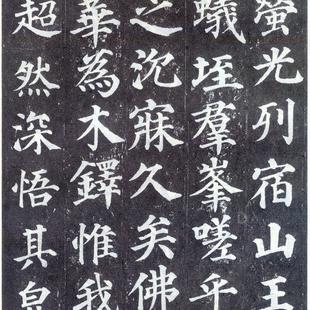 螢光列宿山王
蟻垤羣峯嗟乎
之沉寐久矣佛
華為木鐸惟我
超然深悟其皃